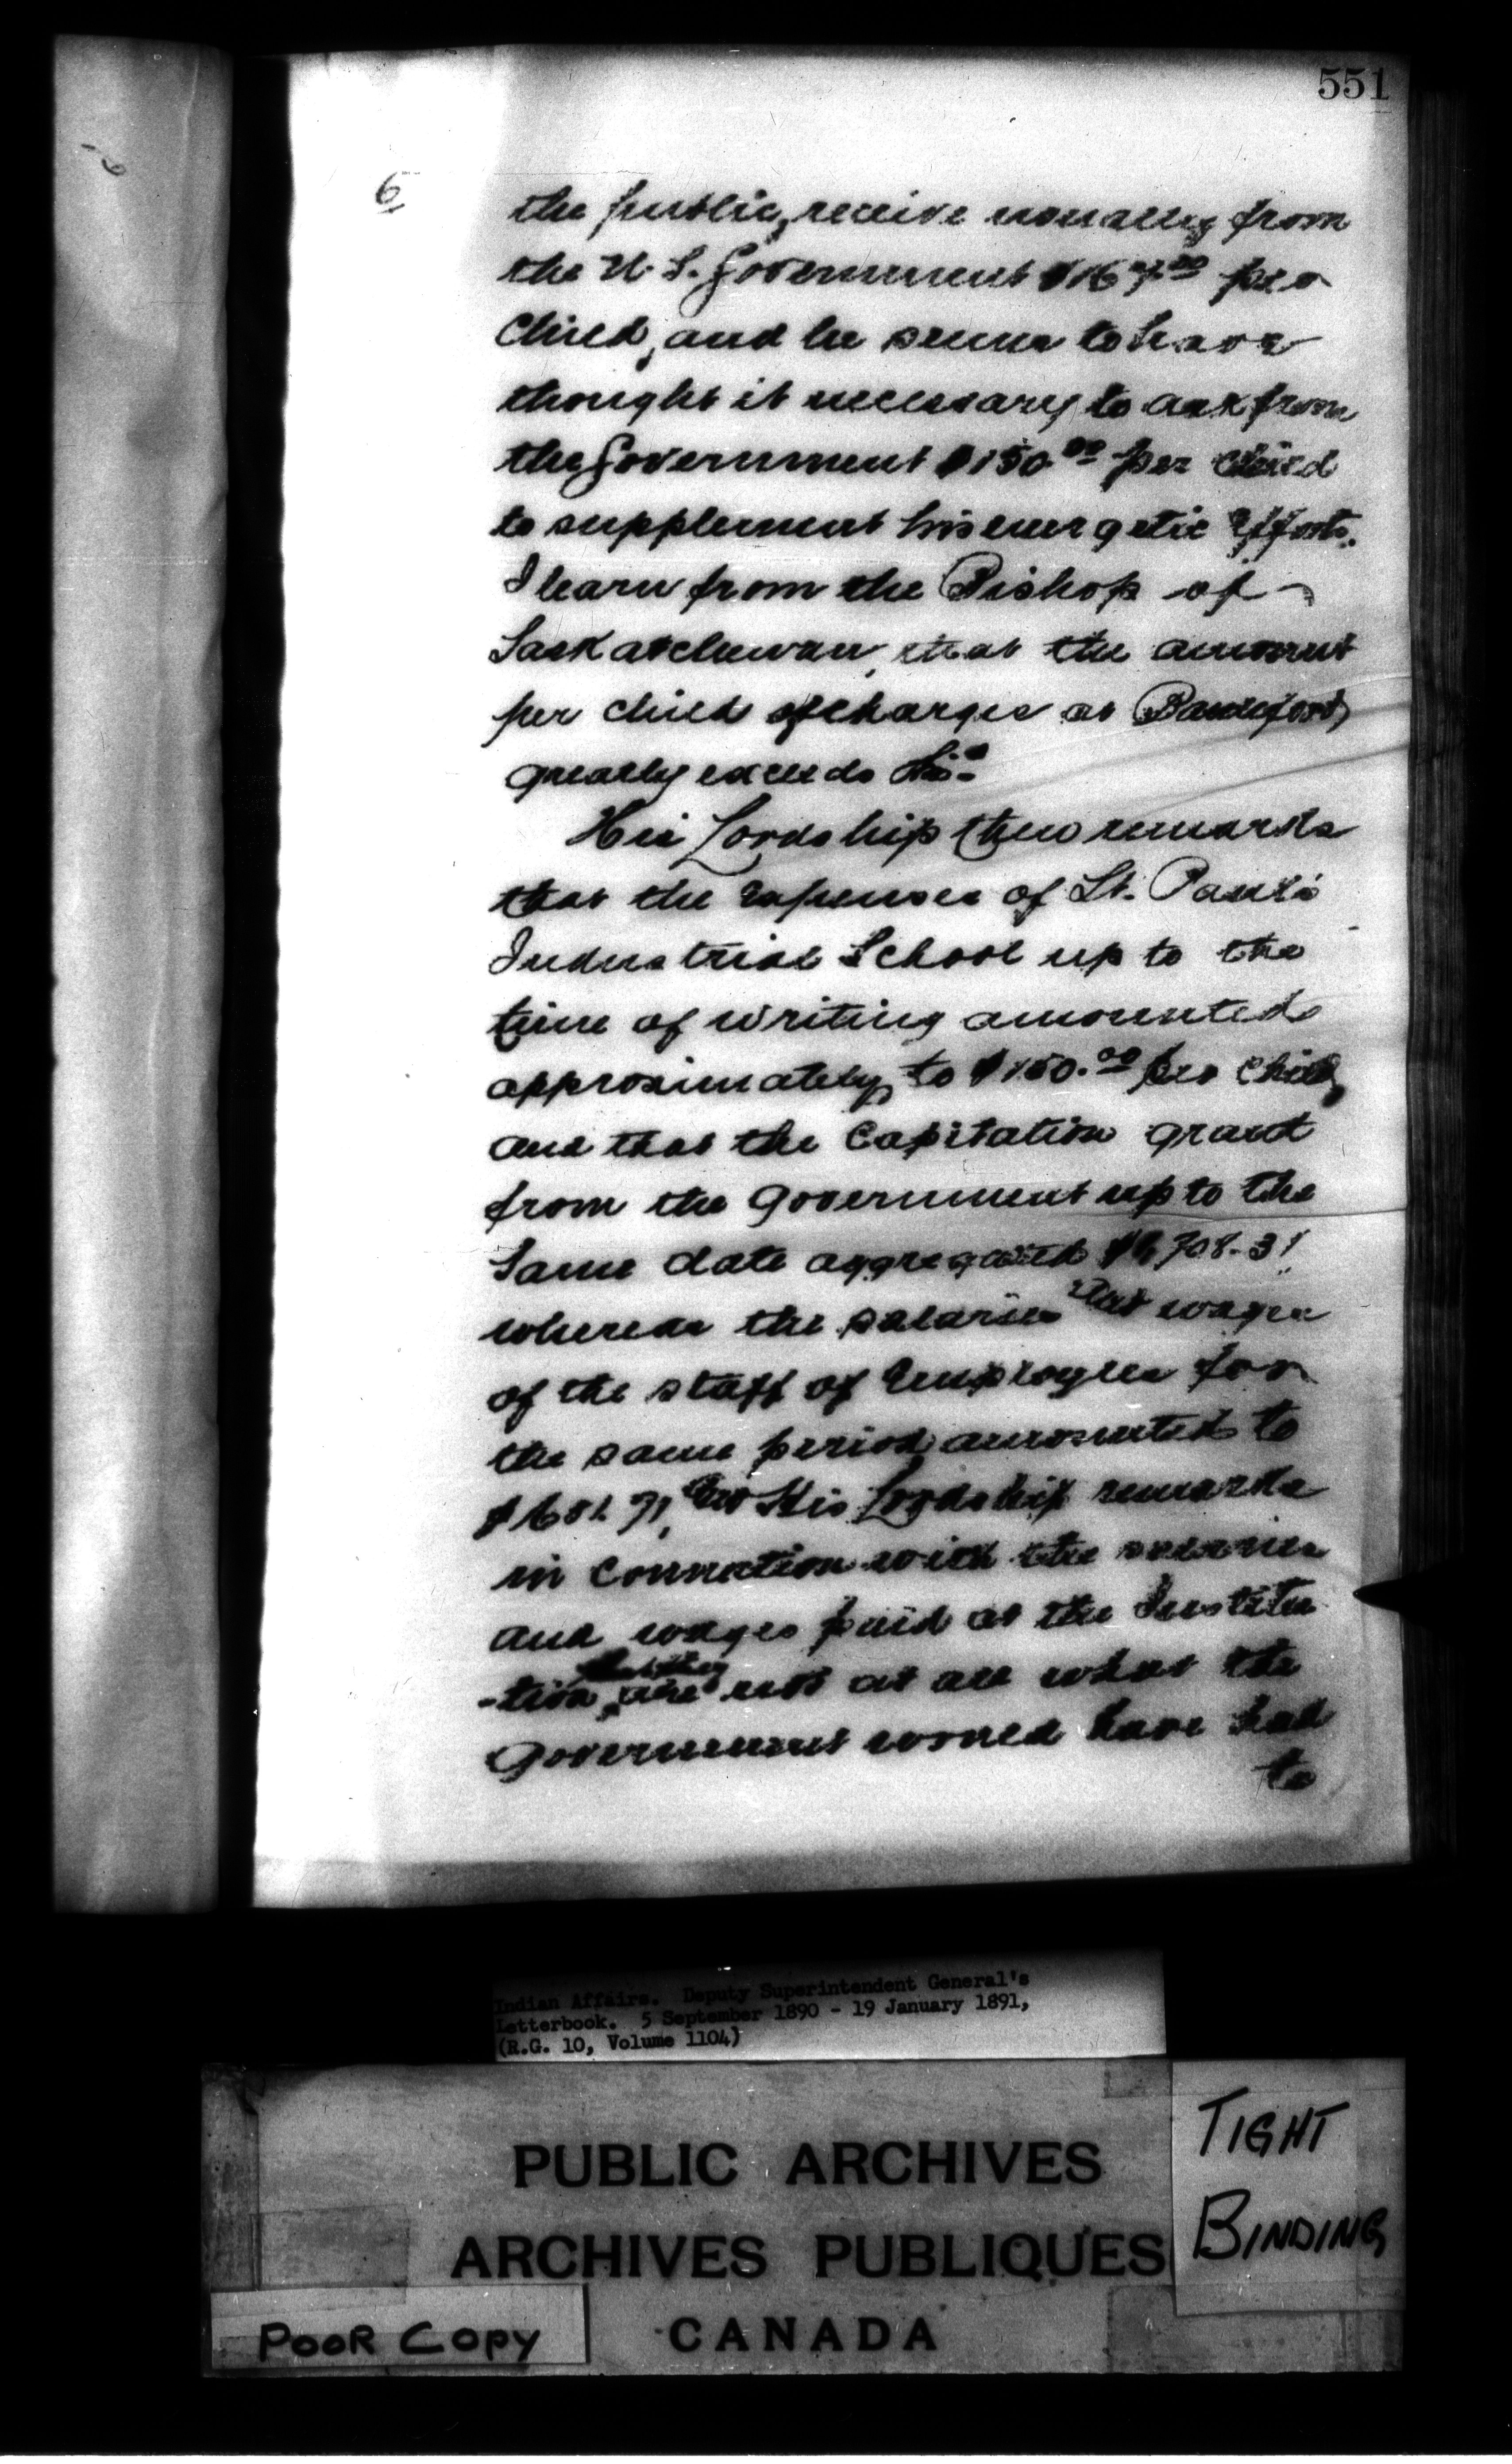 551
6
the public, receive usually from
the U. S. Government $167.00 per
Child, and he seems to have
thought it necessary to ask from
the Government $150.00 per Child
to supplement his energetic Efforts.
I learn from the Bishop of
Saskatchewan, that the amount
per child of charges at
greatly exceeds this.
His Lordship then remarks
that the Expenses of St. Paul's
Industrial School up to the
time of writing amounted
approximately to $150.00 per Child,
and that the Capitation grant
from the Government up to the
Same date aggregated
whereas the salaries and wages
of the staff of Employees for
the same period amounted to
His Lordship remarks
in Connection with the salaries
and wages paid at the Institu
-tion, that they are not at all what the
Government would have had
to
Indian Affairs. Deputy Superintendent General's
Letterbook. 5 September 1890 - 19 January 1891,
(R.G. 10, Volume 1104)
PUBLIC ARCHIVES
ARCHIVES PUBLIQUES
CANADA
TIGHT
BINDING
POOR COPY